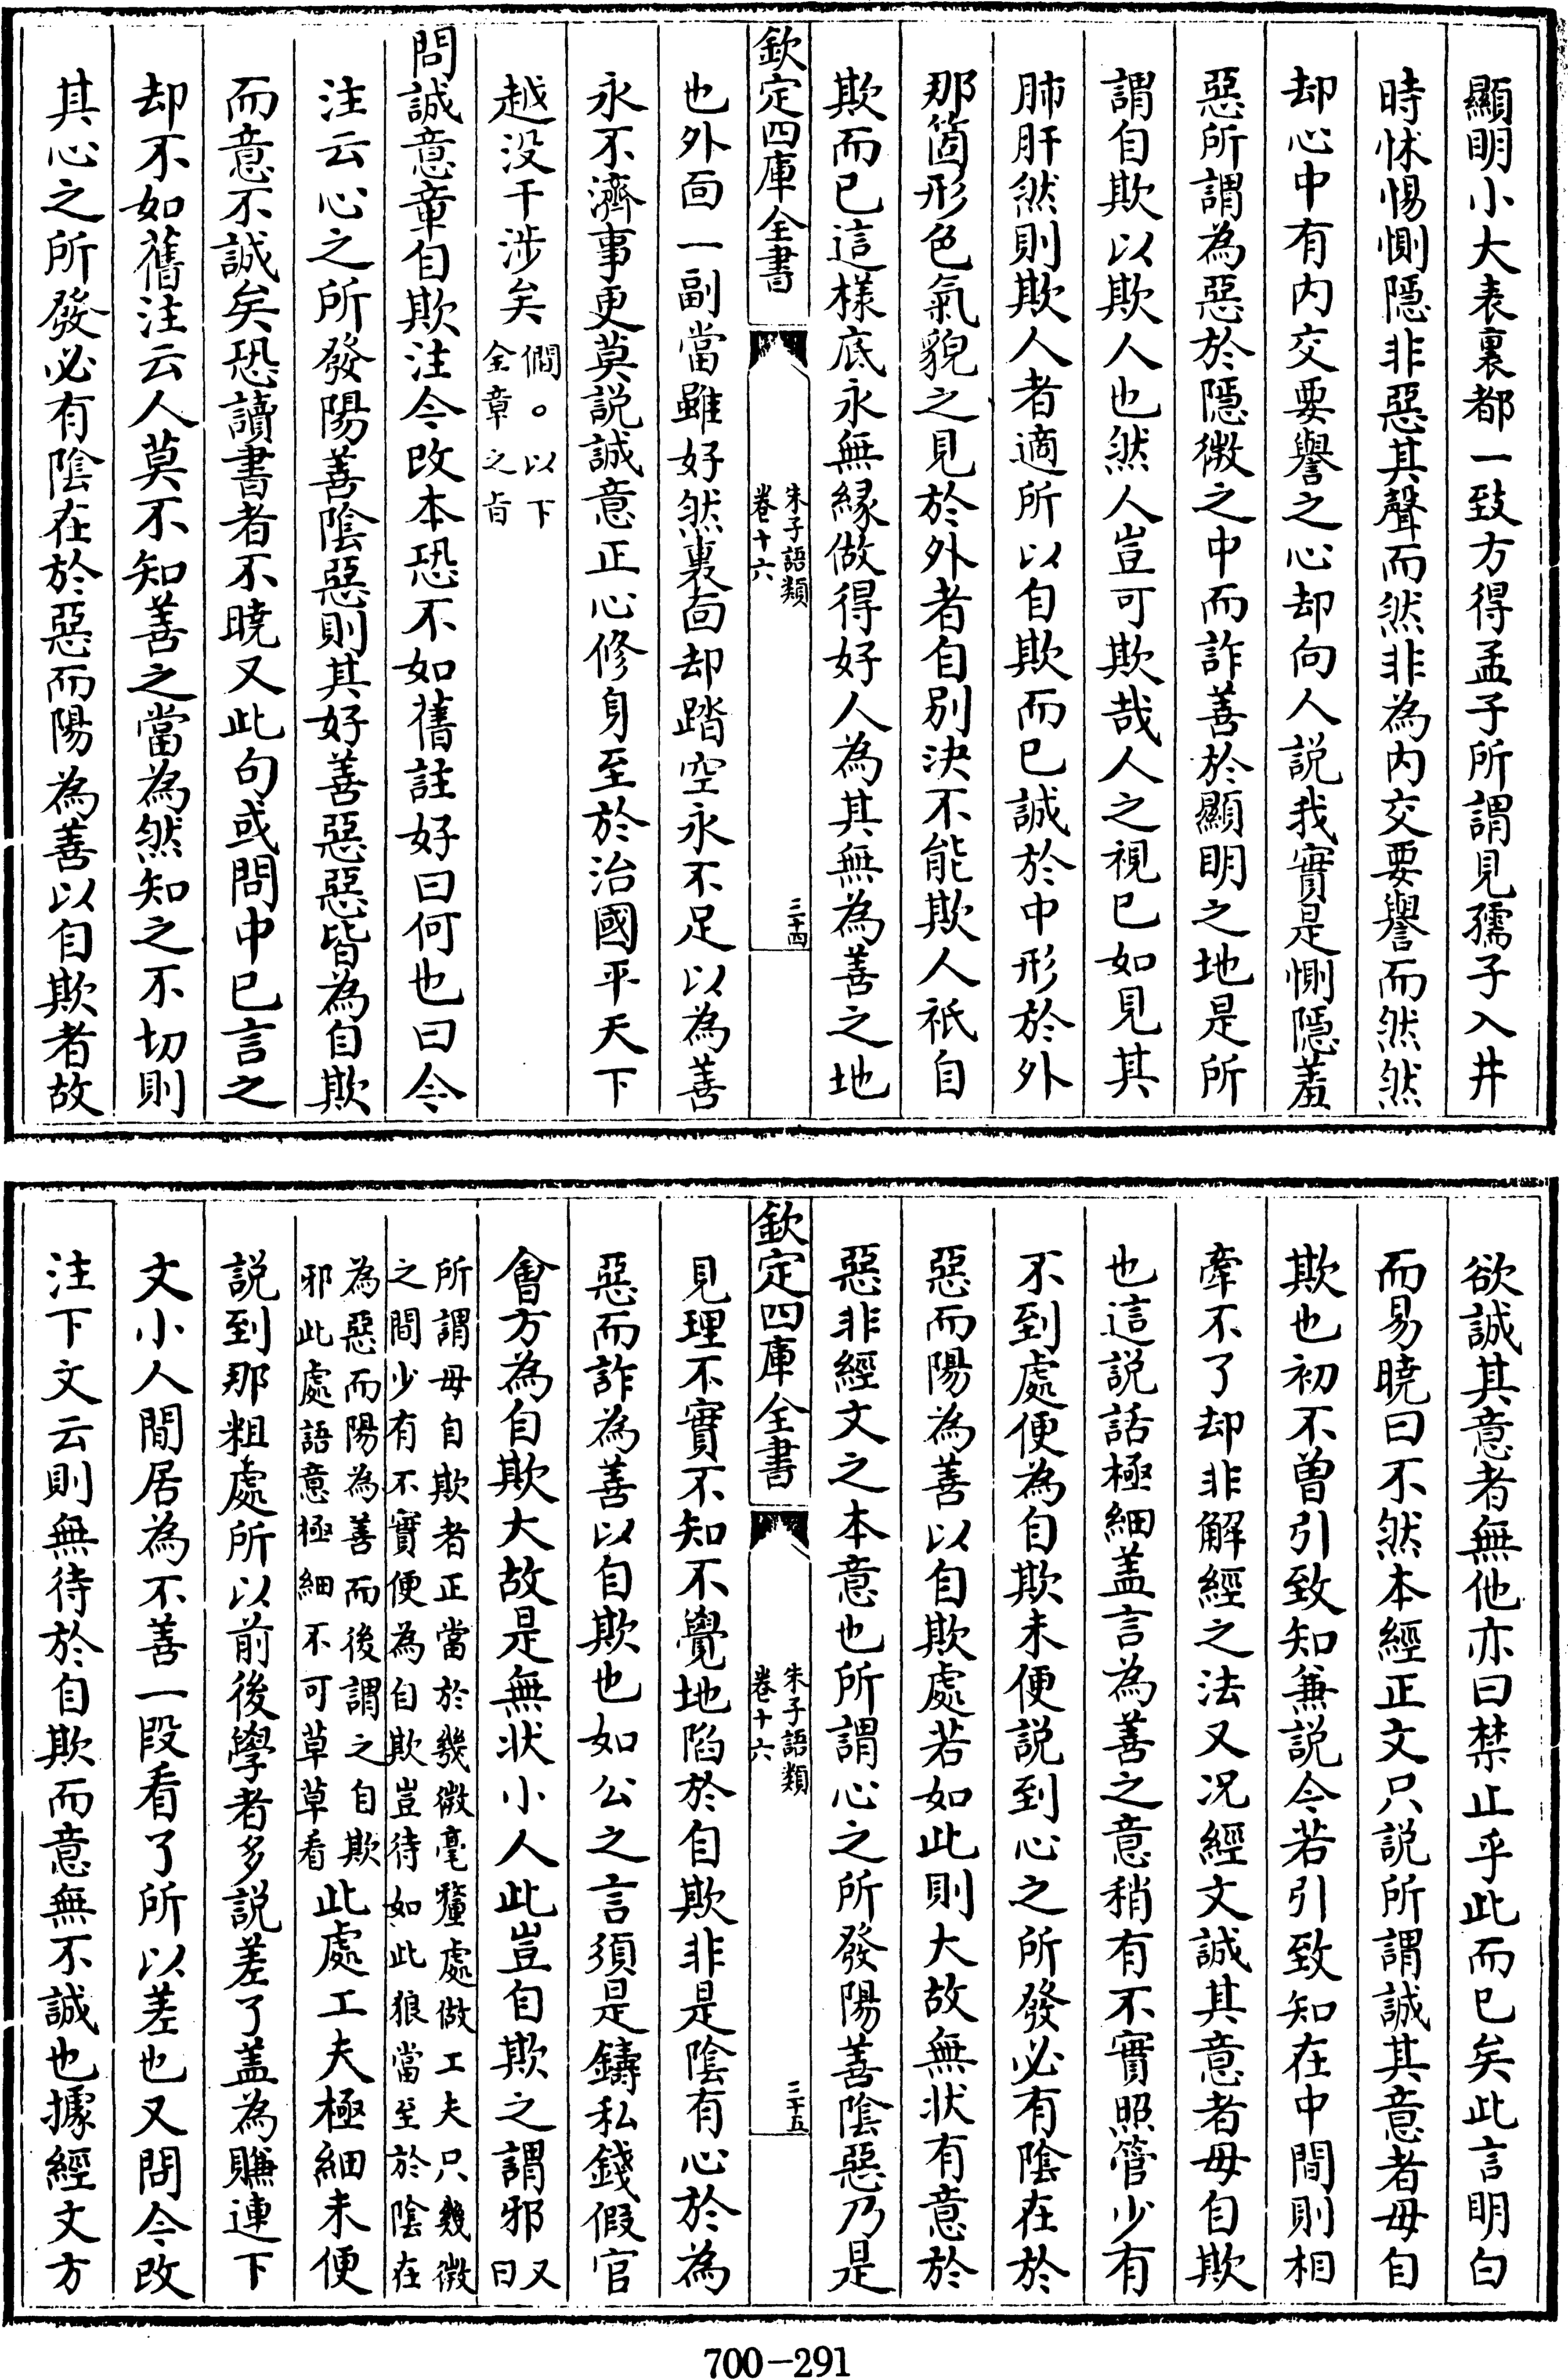 顯明小大表裏都一致方得孟子所謂見孺子入井
時怵惕惻隠非惡其聲而然非為内交要譽而然然
却心中有内交要譽之心却向人說我實是惻隠羞
惡所謂為惡於隠微之中而詐善於顯明之地是所
謂自欺以欺人也然人豈可欺哉人之視已如見其
肺肝然則欺人者適所以自欺而已誠於中形於外
那箇形色氣貌之見於外者自别決不能欺人祇自
欺而已這樣底永無緣做得好人為其無為善之地
欽定四庫全書
朱子語類
卷十六
三十四
也外面一副當雖好然裏面却踏空永不足以為善
永不濟事更莫說誠意正心修身至於治國平天下
越没干涉矣 僩。以下
全章之㫖
問誠意章自欺注今改本恐不如舊註好曰何也曰今
注云心之所發陽善陰惡則其好善惡惡皆為自欺
而意不誠矣恐讀書者不曉又此句或問中已言之
却不如舊注云人莫不知善之當為然知之不切則
其心之所發必有陰在於惡而陽為善以自欺者故
欲誠其意者無他亦曰禁止乎此而已矣此言明白
而易曉曰不然本經正文只說所謂誠其意者毋自
欺也初不曽引致知兼說今若引致知在中間則相
牽不了却非解經之法又况經文誠其意者毋自欺
也這說話極細盖言為善之意稍有不實照管少有
不到處便為自欺未便說到心之所發必有陰在於
惡而陽為善以自欺處若如此則大故無状有意於
惡非經文之本意也所謂心之所發陽善陰惡乃是
欽定四庫全書
朱子語類
卷十六
三十五
見理不實不知不覺地陷於自欺非是陰有心於為
惡而詐為善以自欺也如公之言須是鑄私錢假官
會方為自欺大故是無状小人此豈自欺之謂邪 又
曰
所謂毋自欺者正當於幾微毫釐處做工夫只幾微
之間少有不實便為自欺豈待如此狼當至於陰在
為惡而陽為善而後謂之自欺
邪此處語意極細不可草草看 此處工夫極細未便
說到那粗處所以前後學者多說差了盖為賺連下
文小人閒居為不善一段看了所以差也又問今改
注下文云則無待於自欺而意無不誠也據經文方
700-291